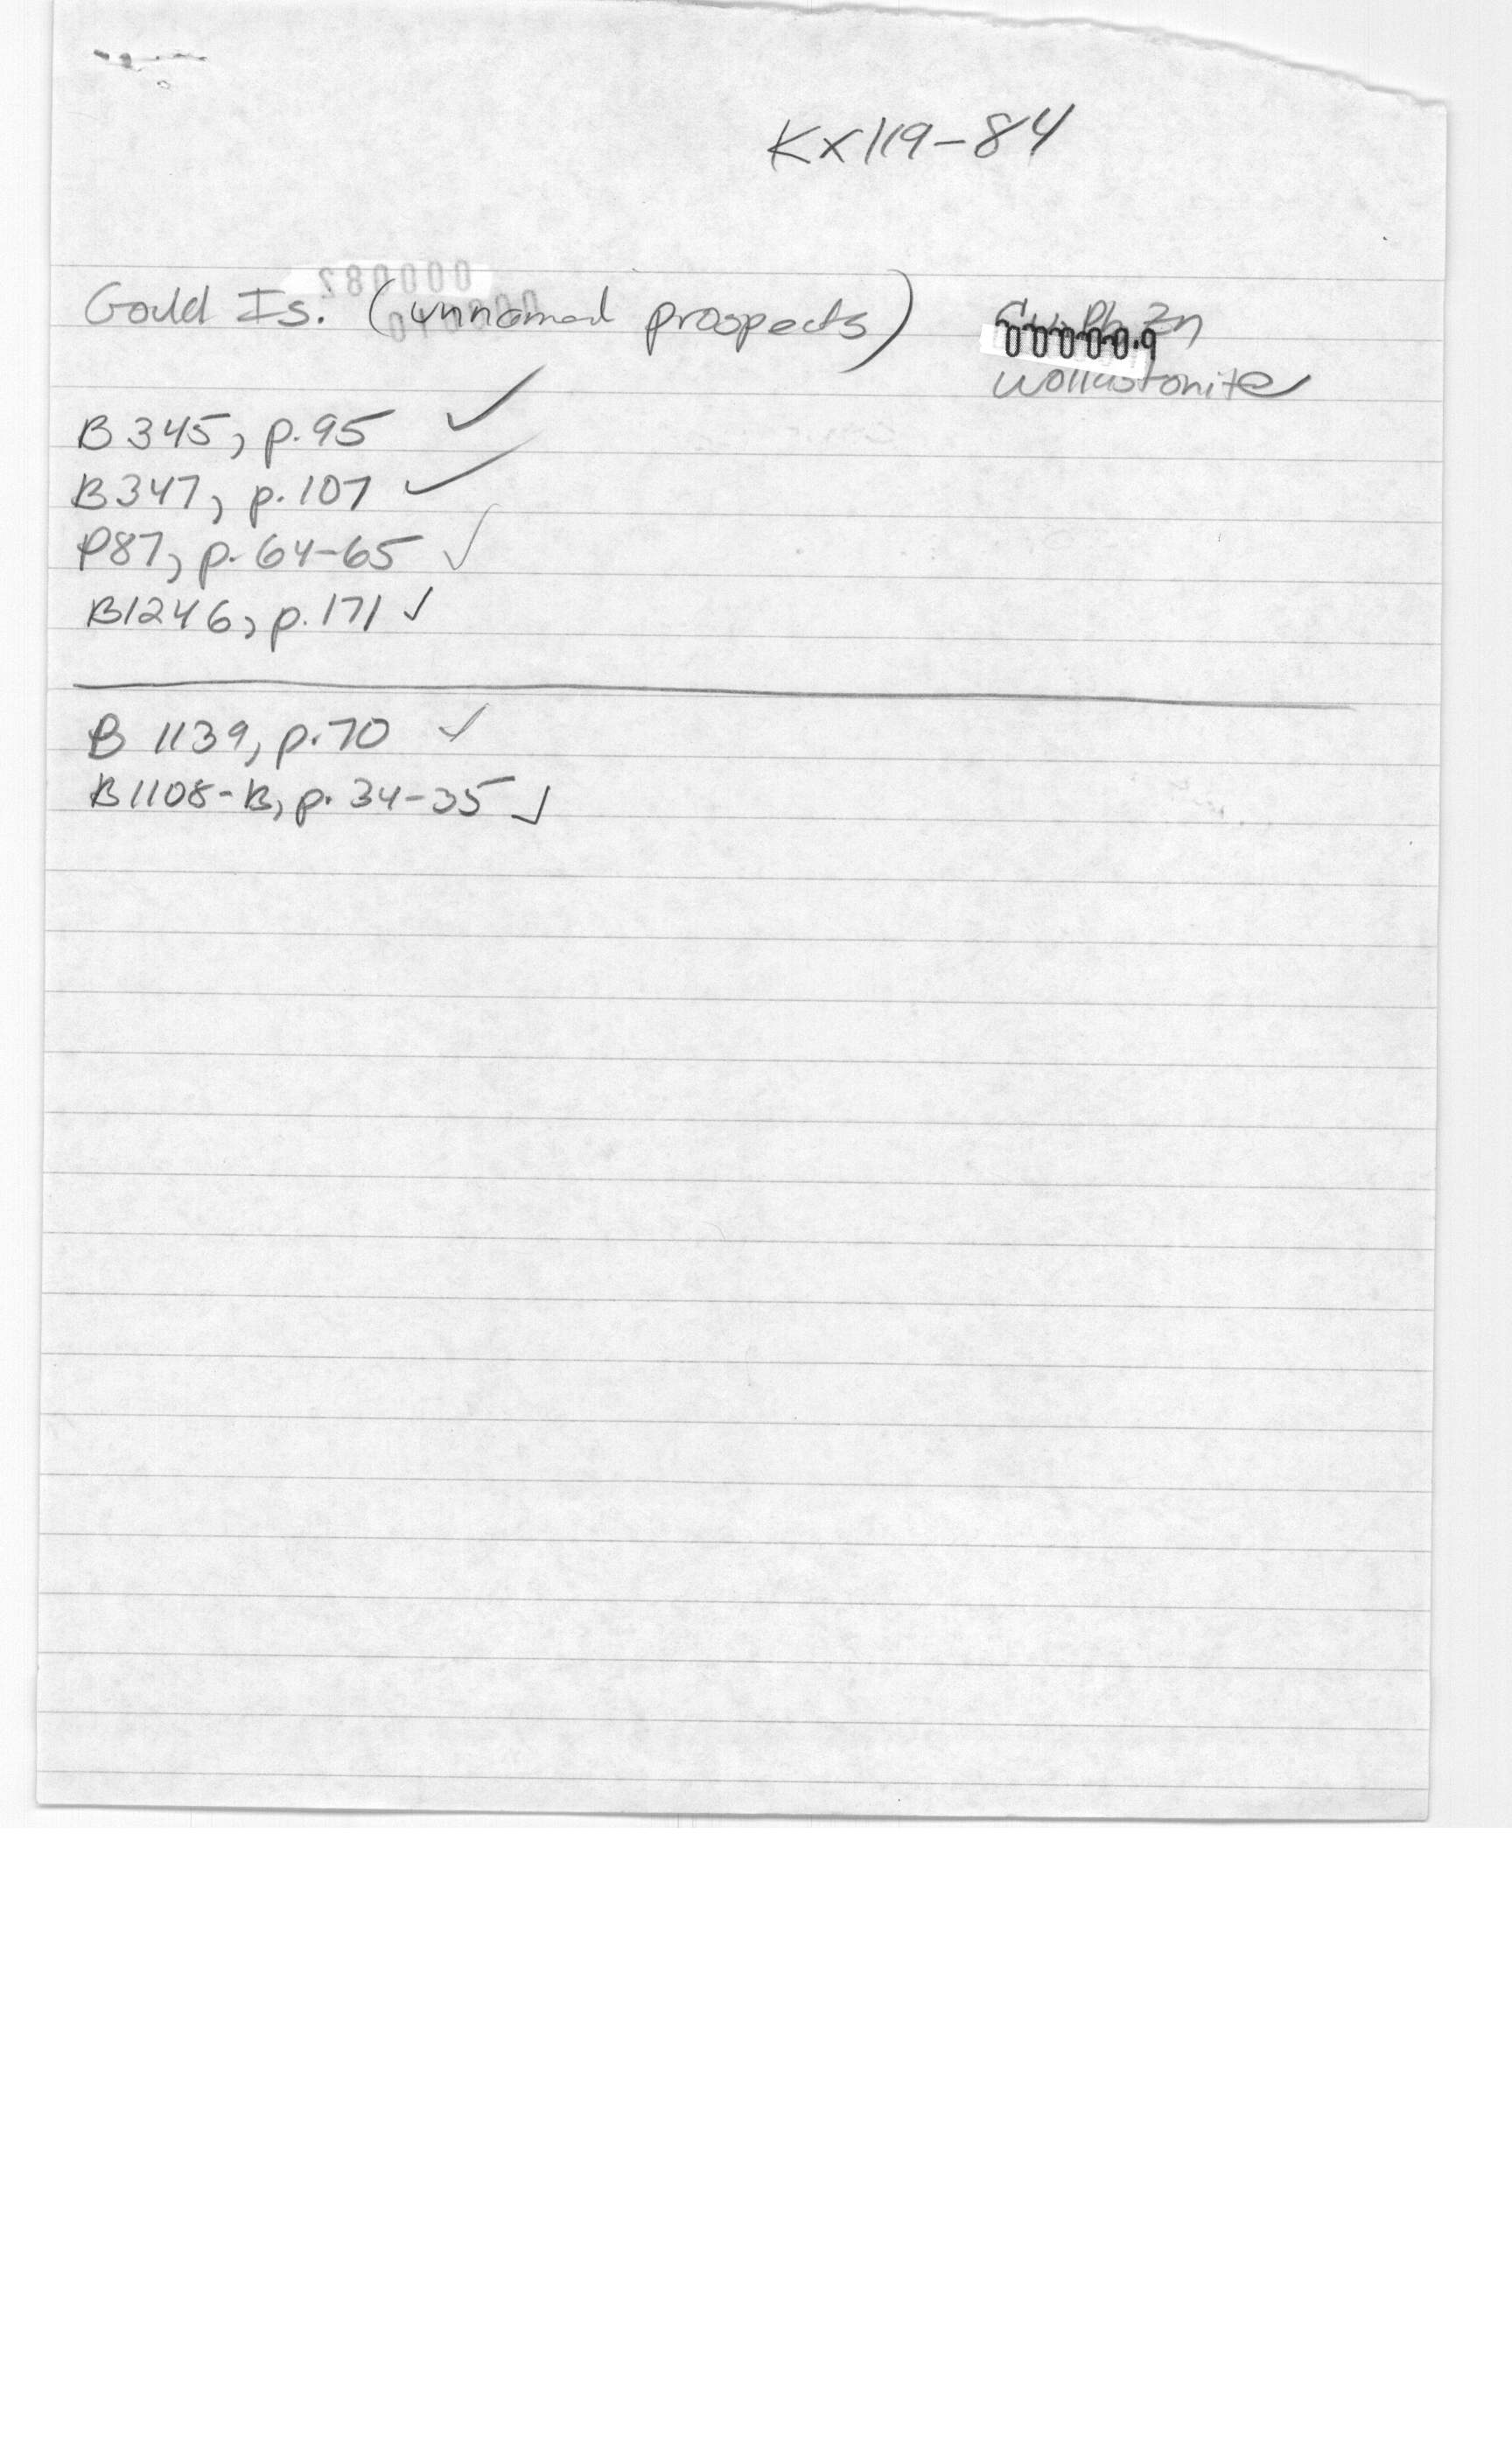 Kx119-84
Gould Is. (unnamed prospects) Cu Pb Zn
Wollastonite
B345, p.95 ✓
B347, p.107 ✓
P87, p. 64-65 ✓
B1246, p.171 ✓
B 1139, p.70 ✓
B1108-B, p. 34-35 ✓